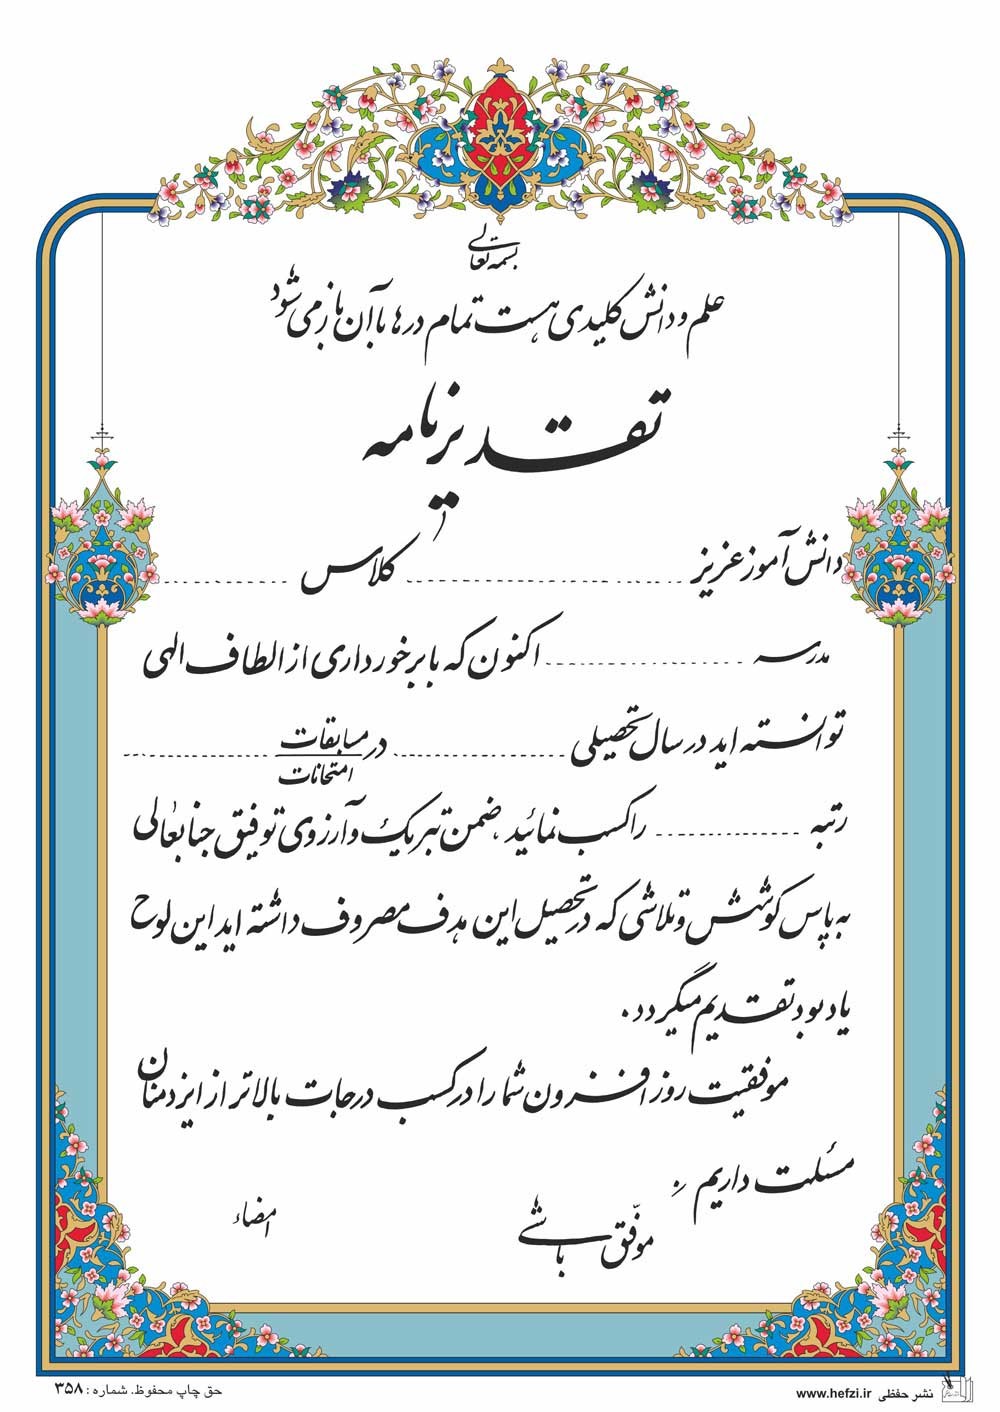 بسمه تعالی
علم و دانش کلیدی هست تمام درها با آن باز می شود
تقدیرنامه
دانش آموز عزیز ........................ کلاس ............
مدرسه .................... اکنون که با برخورداری از الطاف الهی
توانسته اید در سال تحصیلی ................ در مسابقات ................
امتحانات
رتبه ............... را کسب نمائید ضمن تبریک و آرزوی توفیق جنابعالی
به پاس کوشش و تلاشی که در تحصیل این هدف مصروف داشته اید این لوح
یادبود تقدیم میگردد.
موفقیت روز افزون شما را در کسب درجات بالاتر از ایزد منان
مسئلت داریم.
موفّق باشی
امضاء
نشر حفظی www.hefzi.ir
حق چاپ محفوظ. شماره : ۳۵۸